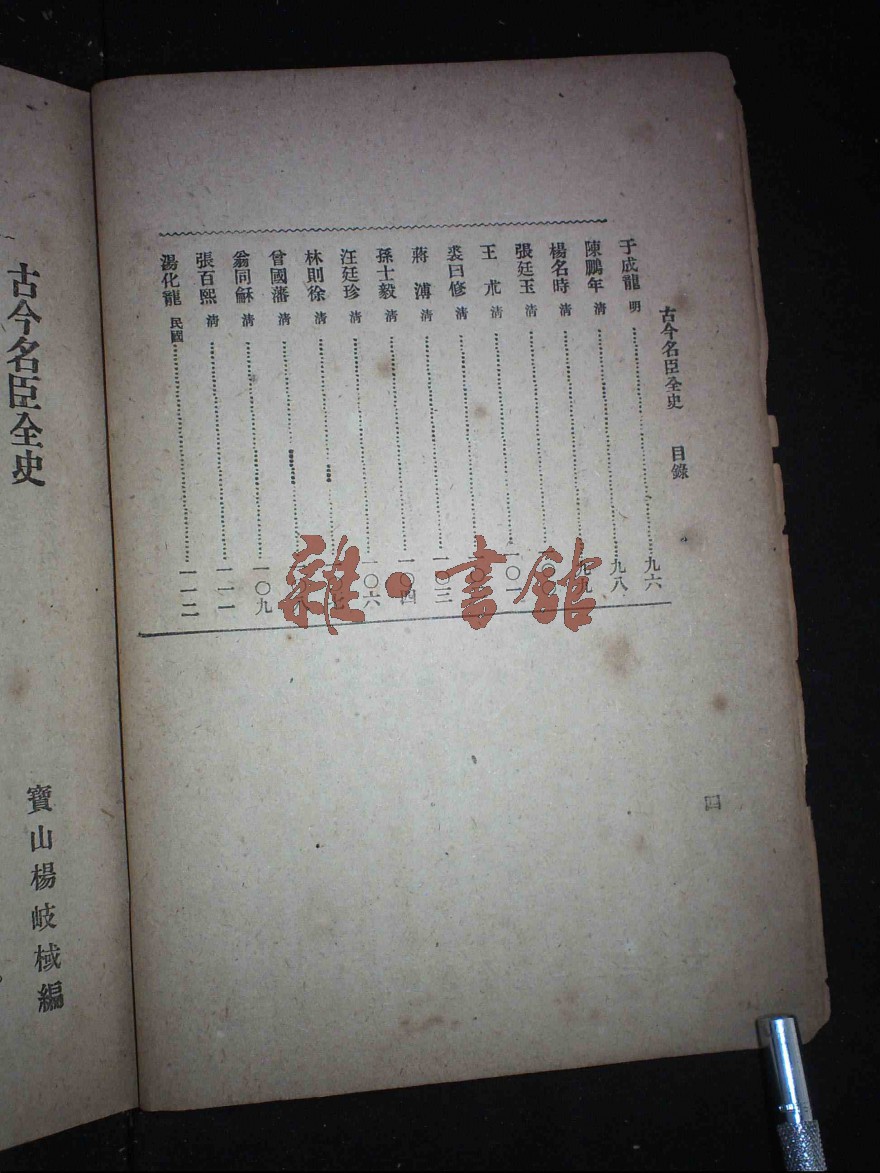 古今名臣全史 目錄
于成龍 明 九六
陳鵬年 清 九八
楊名時 清 九九
張廷玉 清
王 清 一〇一
裘曰修 清
蔣溥 清 一〇三
孫士毅 清 一〇四
汪廷珍 清 一〇六
林則徐 清
曾國藩 清
翁同龢 清 一〇九
張百熙 清 一一一
湯化龍 民國 一一二
四
雜·書館
古今名臣全史
寶山楊岐棫編